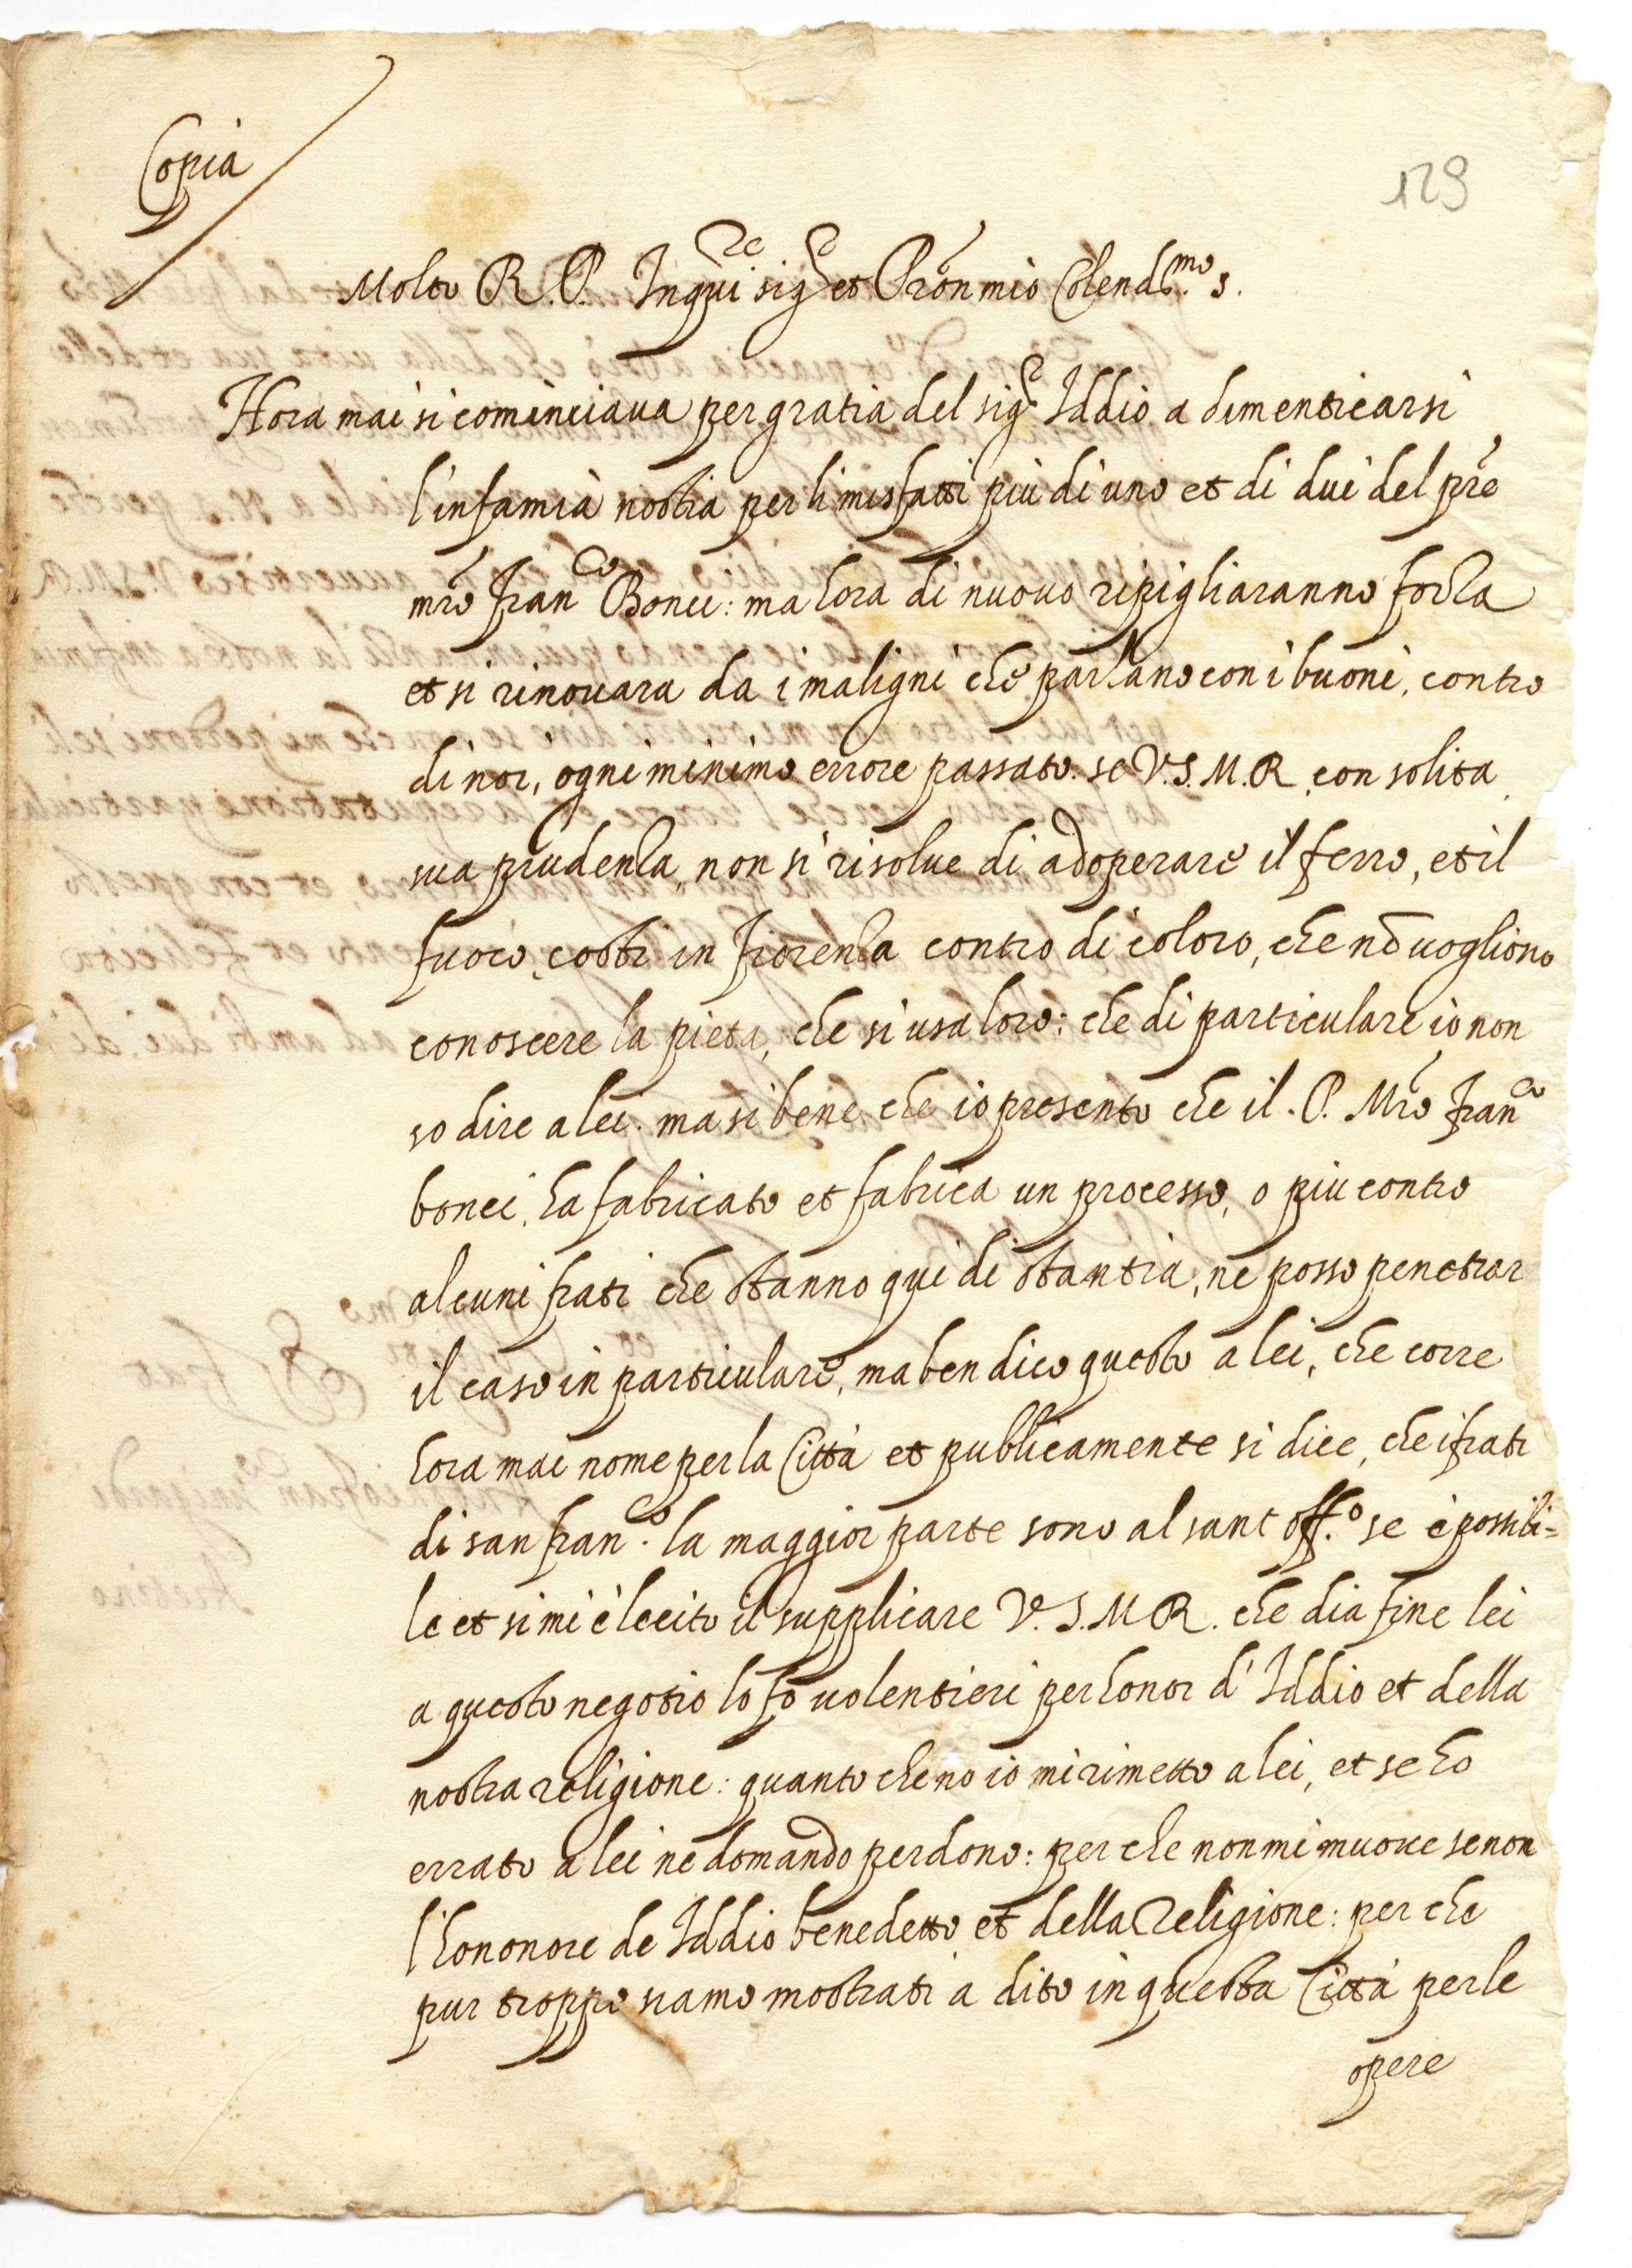 Copia
129
Molto R. P. Inqui.re sig.re et Pron mio Colend.mo s.
Hora mai si cominciaua per gratia del sig.re Iddio a dimenticarsi
l'infamia nostra per li misfatti più di uno et di dui del pre
mro Fran.co Bonci: ma hora di nuouo ripigliaranno forza
et si rinouara da i maligni che parlano con i buoni, contro
di noi, ogni minimo errore passato. se V.S.M.R. con solita
sua prudenza, non si risolue di adoperare il ferro, et il
fuoco, costi in Fiorenza contro di coloro, che nõ uogliono
conoscere la pieta, che si usa loro: che di particulare io non
so dire a lei. ma si bene che io presento che il. P. Mro Fran.co
bonci, ha fabricato et fabrica un processo, o piu contro
alcuni frati che stanno qui di stantia, ne posso penetrar
il caso in particulare, ma ben dico questo a lei, che corre
hora mai nome per la Città et publicamente si dice, che i frati
di san fran.co la maggior parte sono al sant off.o se è possibi=
le et si mi è lecito il supplicare V.S.M R. che dia fine lei
a questo negotio lo fo uolentieri per honor d'Iddio et della
nostra religione: quanto che no io mi rimetto a lei, et se ho
errato a lei ne domando perdono: per che non mi muoue se non
l'hononore de Iddio benedetto et della Religione: per che
pur troppo siamo mostrati a dito in questa Città per le
opere